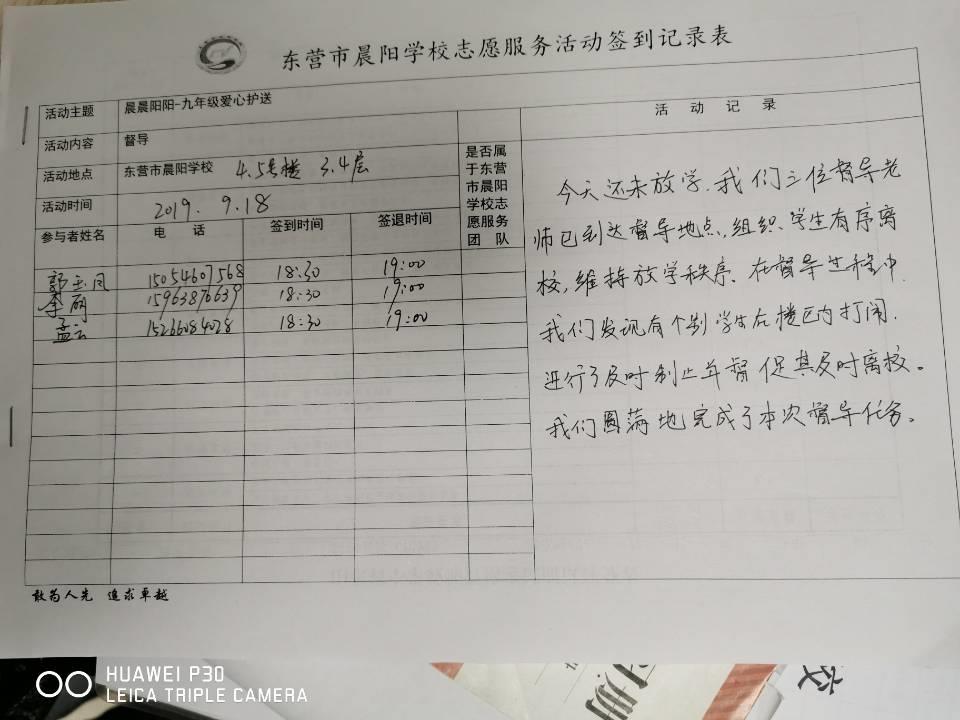 东营市晨阳学校志愿服务活动签到记录表
活动主题 晨晨阳阳-九年级爱心护送
活动内容 督导
活动地点 东营市晨阳学校 4.5号楼 3.4层
活动时间 2019. 9.18
参与者姓名 电 话 签到时间 签退时间
是否属
于东营
市晨阳
学校志
愿服务
团 队
郭玉凤 15054607568 18:30 19:00
李丽 15963876639 18:30 19:00
孟云 15266084028 18:30 19:00
活 动 记 录
今天还未放学,我们三位督导老
师已到达督导地点,组织学生有序离
校,维持放学秩序.在督导过程中.
我们发现有个别学生在楼区内打闹.
进行了及时制止并督促其及时离校。
我们圆满地完成了本次督导任务。
敢为人先 追求卓越
HUAWEI P30
LEICA TRIPLE CAMERA